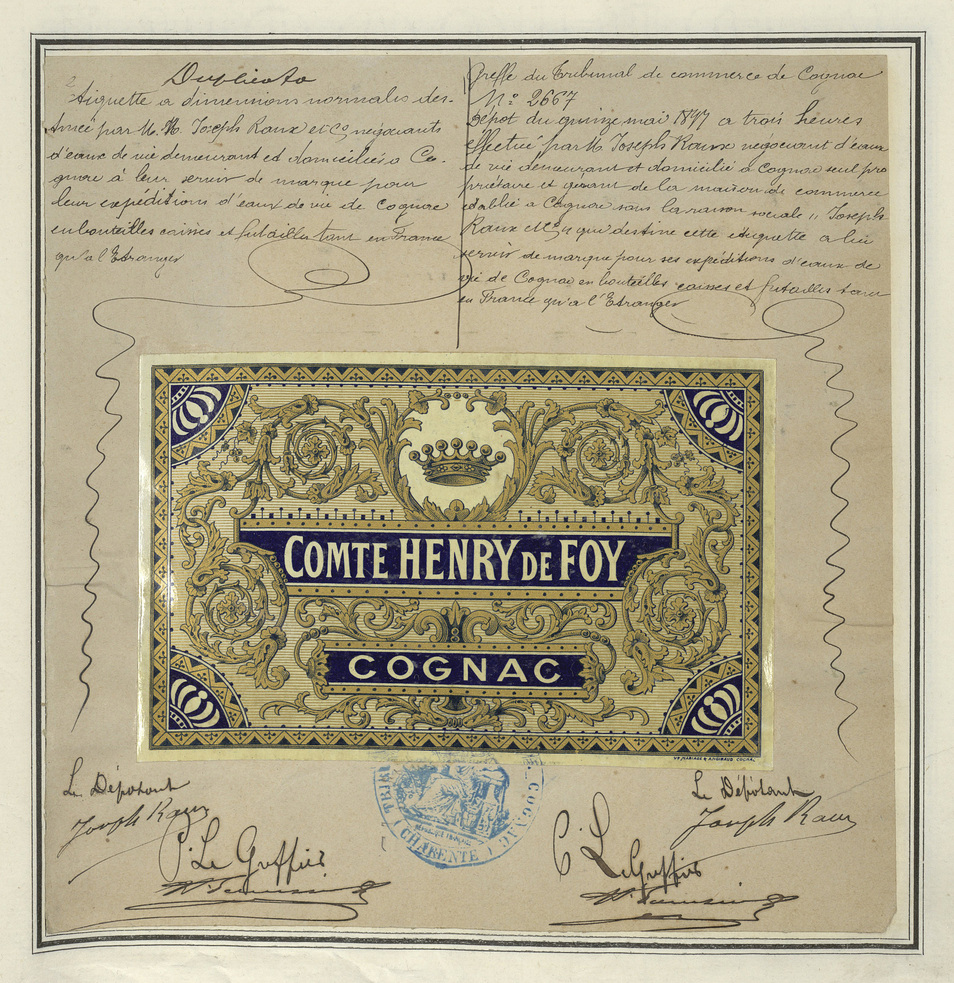 Duplicata
Etiquette a dimensions normales des-
tinée par M. M. Joseph Raux et Co négociants
d'eaux de vie demeurant et domiciliés a Co-
gnac à leur servir de marque pour
leur expéditions d'eaux de vie de Cognac
en bouteilles caisses et futailles tant en France
qu'a l'Etranger
Greffe du Tribunal de commerce de Cognac
No: 2667
Dépot du quinze mai 1897 a trois heures
effectué par M. Joseph Raux négociant d'eaux
de vie demeurant et domicilié a Cognac seul pro
priétaire et gérant de la maison de commerce
etablie a Cognac sous la raison sociale „ Joseph
Raux et Co „ qui destine cette etiquette a lui
servir de marque pour ses expéditions d'eaux de
vie de Cognac en bouteilles caisses et futailles tant
en France qu'a l'Etranger
COMTE HENRY DE FOY
COGNAC
COGNAC
CHARENTE
Le Déposant
Joseph Raux
Le Greffier
Le Déposant
Joseph Raux
Le Greffier